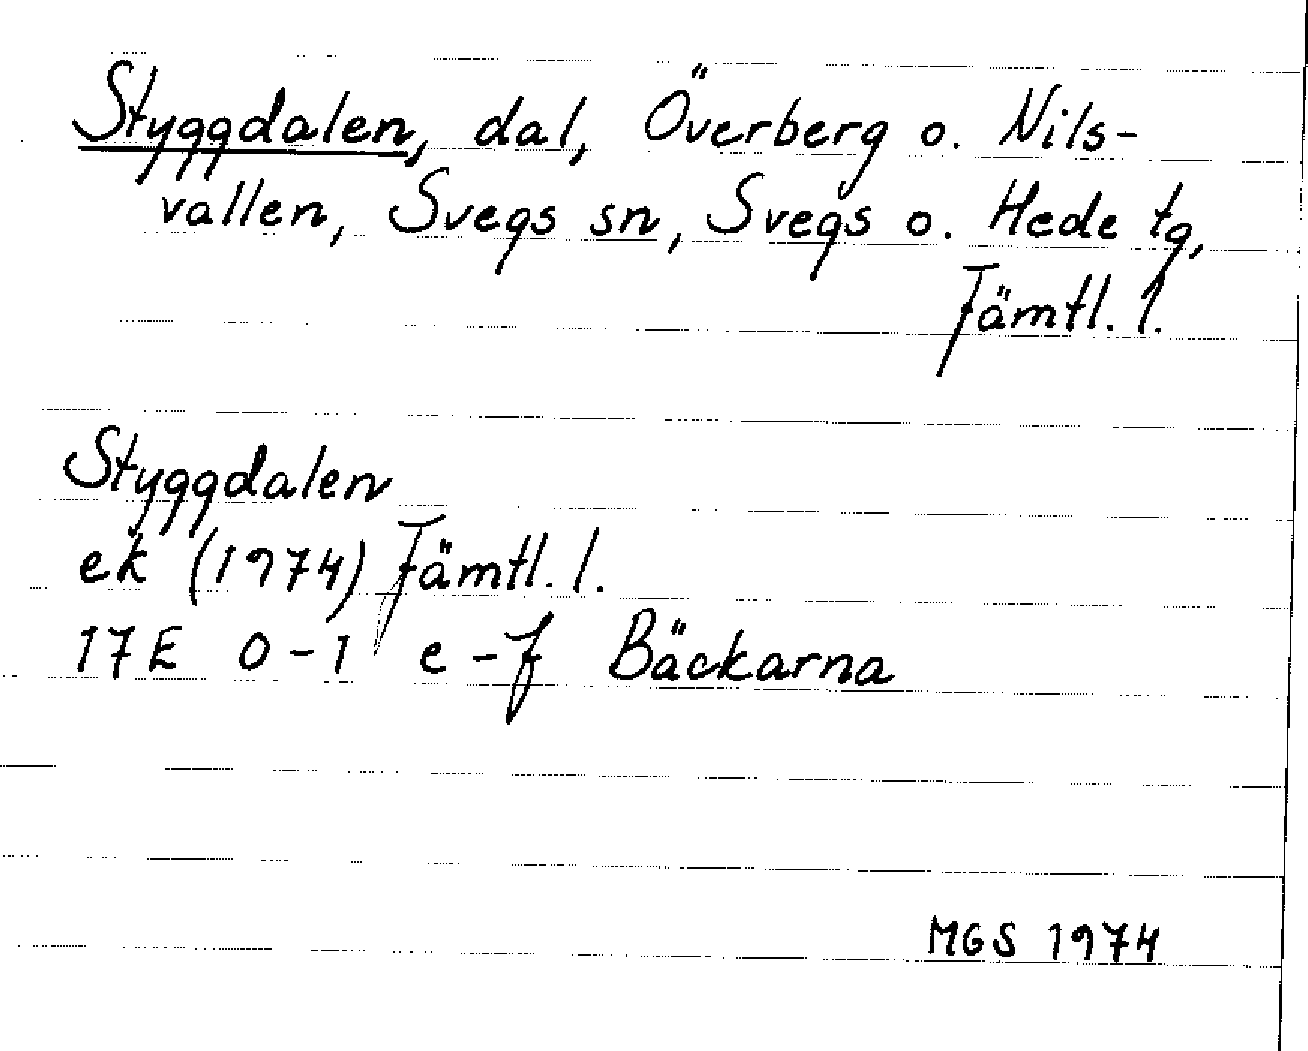 Styggdalen, dal, Överberg o. Nils-
vallen, Svegs sn, Svegs o. Hede tg,
Jämtl. l.
Styggdalen
ek (1974) Jämtl. l.
17E 0-1 e-f Bäckarna
MGS 1974